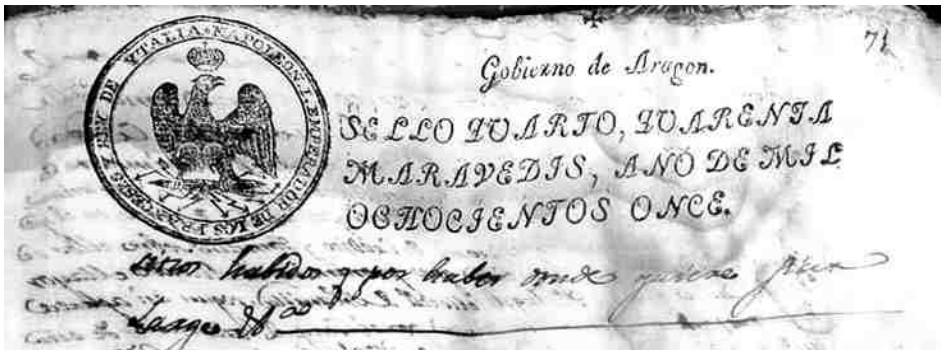 71
NAPOLEON I. EMPERADOR DE LOS FRANCESES Y REY DE YTALIA
Gobierno de Aragon.
SELLO QUARTO, QUARENTA
MARAVEDIS, AÑO DE MIL
OCHOCIENTOS ONCE.
sitios habidos y por haber onde quiere
Largo